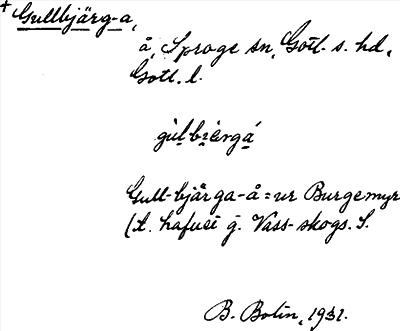 + Gullbjärg-a,
å, Sproge sn, Gotl. s. hd,
Gotl. l.
gùlbiɛrgá
Gull-bjärga-å = ur Burgemyr
(t. hafuet g. Vass-skogs. S.
B. Bolin, 1931.